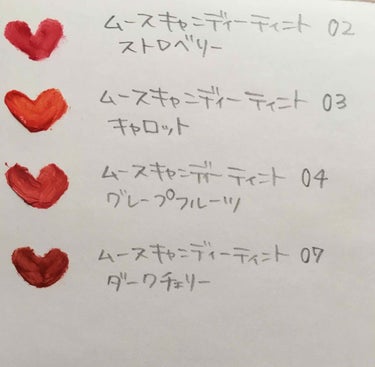 ムースキャンディーティント 02
ストロベリー
ムースキャンディーティント 03
キャロット
ムースキャンディーティント 04
グレープフルーツ
ムースキャンディーティント 07
ダークチェリー